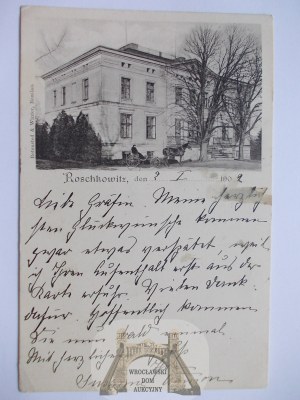 Roschkowitz, den 9 I 1902
Liebe Gräfin. Meine herzlich-
sten Glückwünsche kommen
zwar etwas verspätet, weil
ich Ihren Aufenthalt erst aus der
Karte erfuhr. Vielen Dank
dafür. Hoffentlich kommen
Sie nun bald einmal
Mit herzlichen
WROCŁAWSKI
DOM
AUKCYJNY